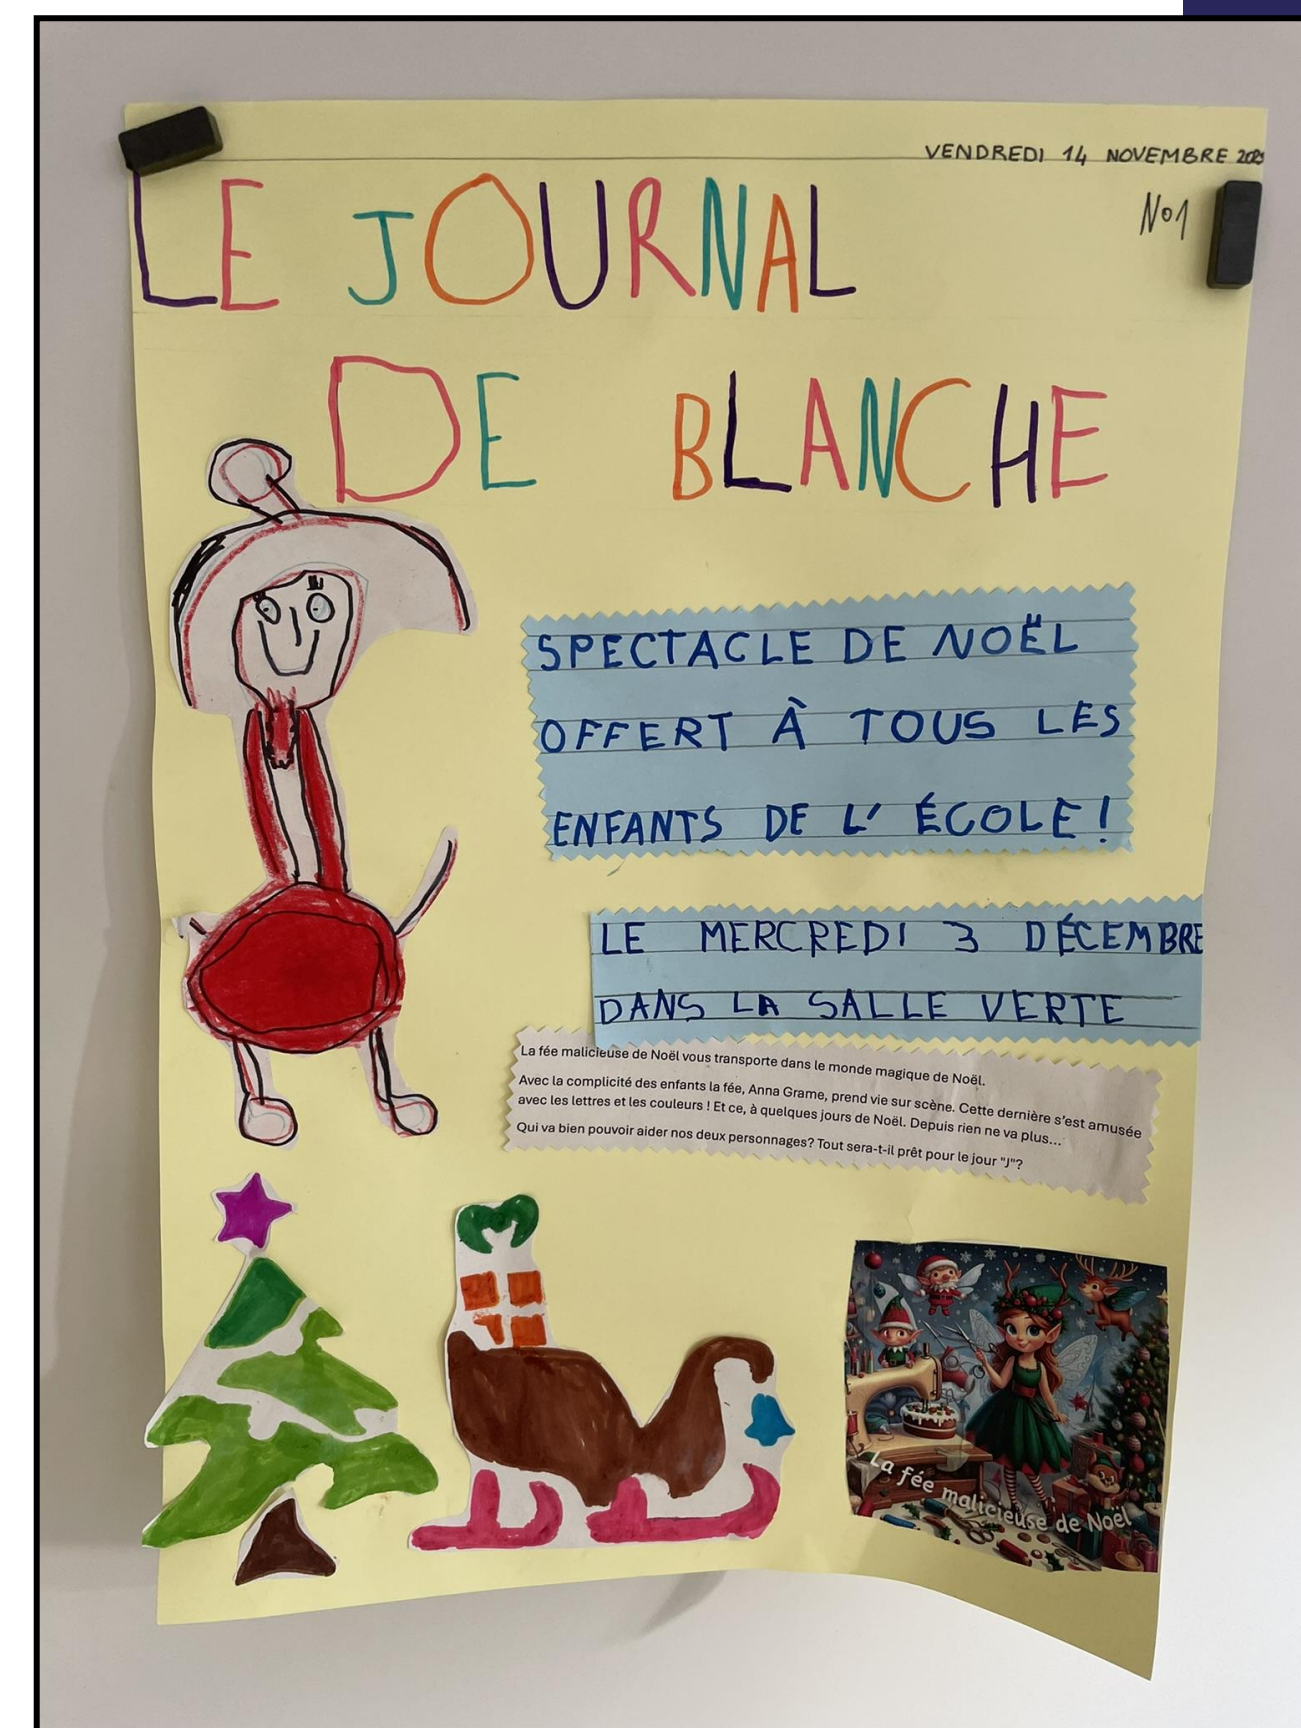 VENDREDI 14 NOVEMBRE 2025
N°1
LE JOURNAL
DE BLANCHE
SPECTACLE DE NOËL
OFFERT À TOUS LES
ENFANTS DE L' ÉCOLE !
LE MERCREDI 3 DÉCEMBRE
DANS LA SALLE VERTE
La fée malicieuse de Noël vous transporte dans le monde magique de Noël.
Avec la complicité des enfants la fée, Anna Grame, prend vie sur scène. Cette dernière s'est amusée
avec les lettres et les couleurs ! Et ce, à quelques jours de Noël. Depuis rien ne va plus...
Qui va bien pouvoir aider nos deux personnages? Tout sera-t-il prêt pour le jour "J"?
La fée malicieuse de Noël